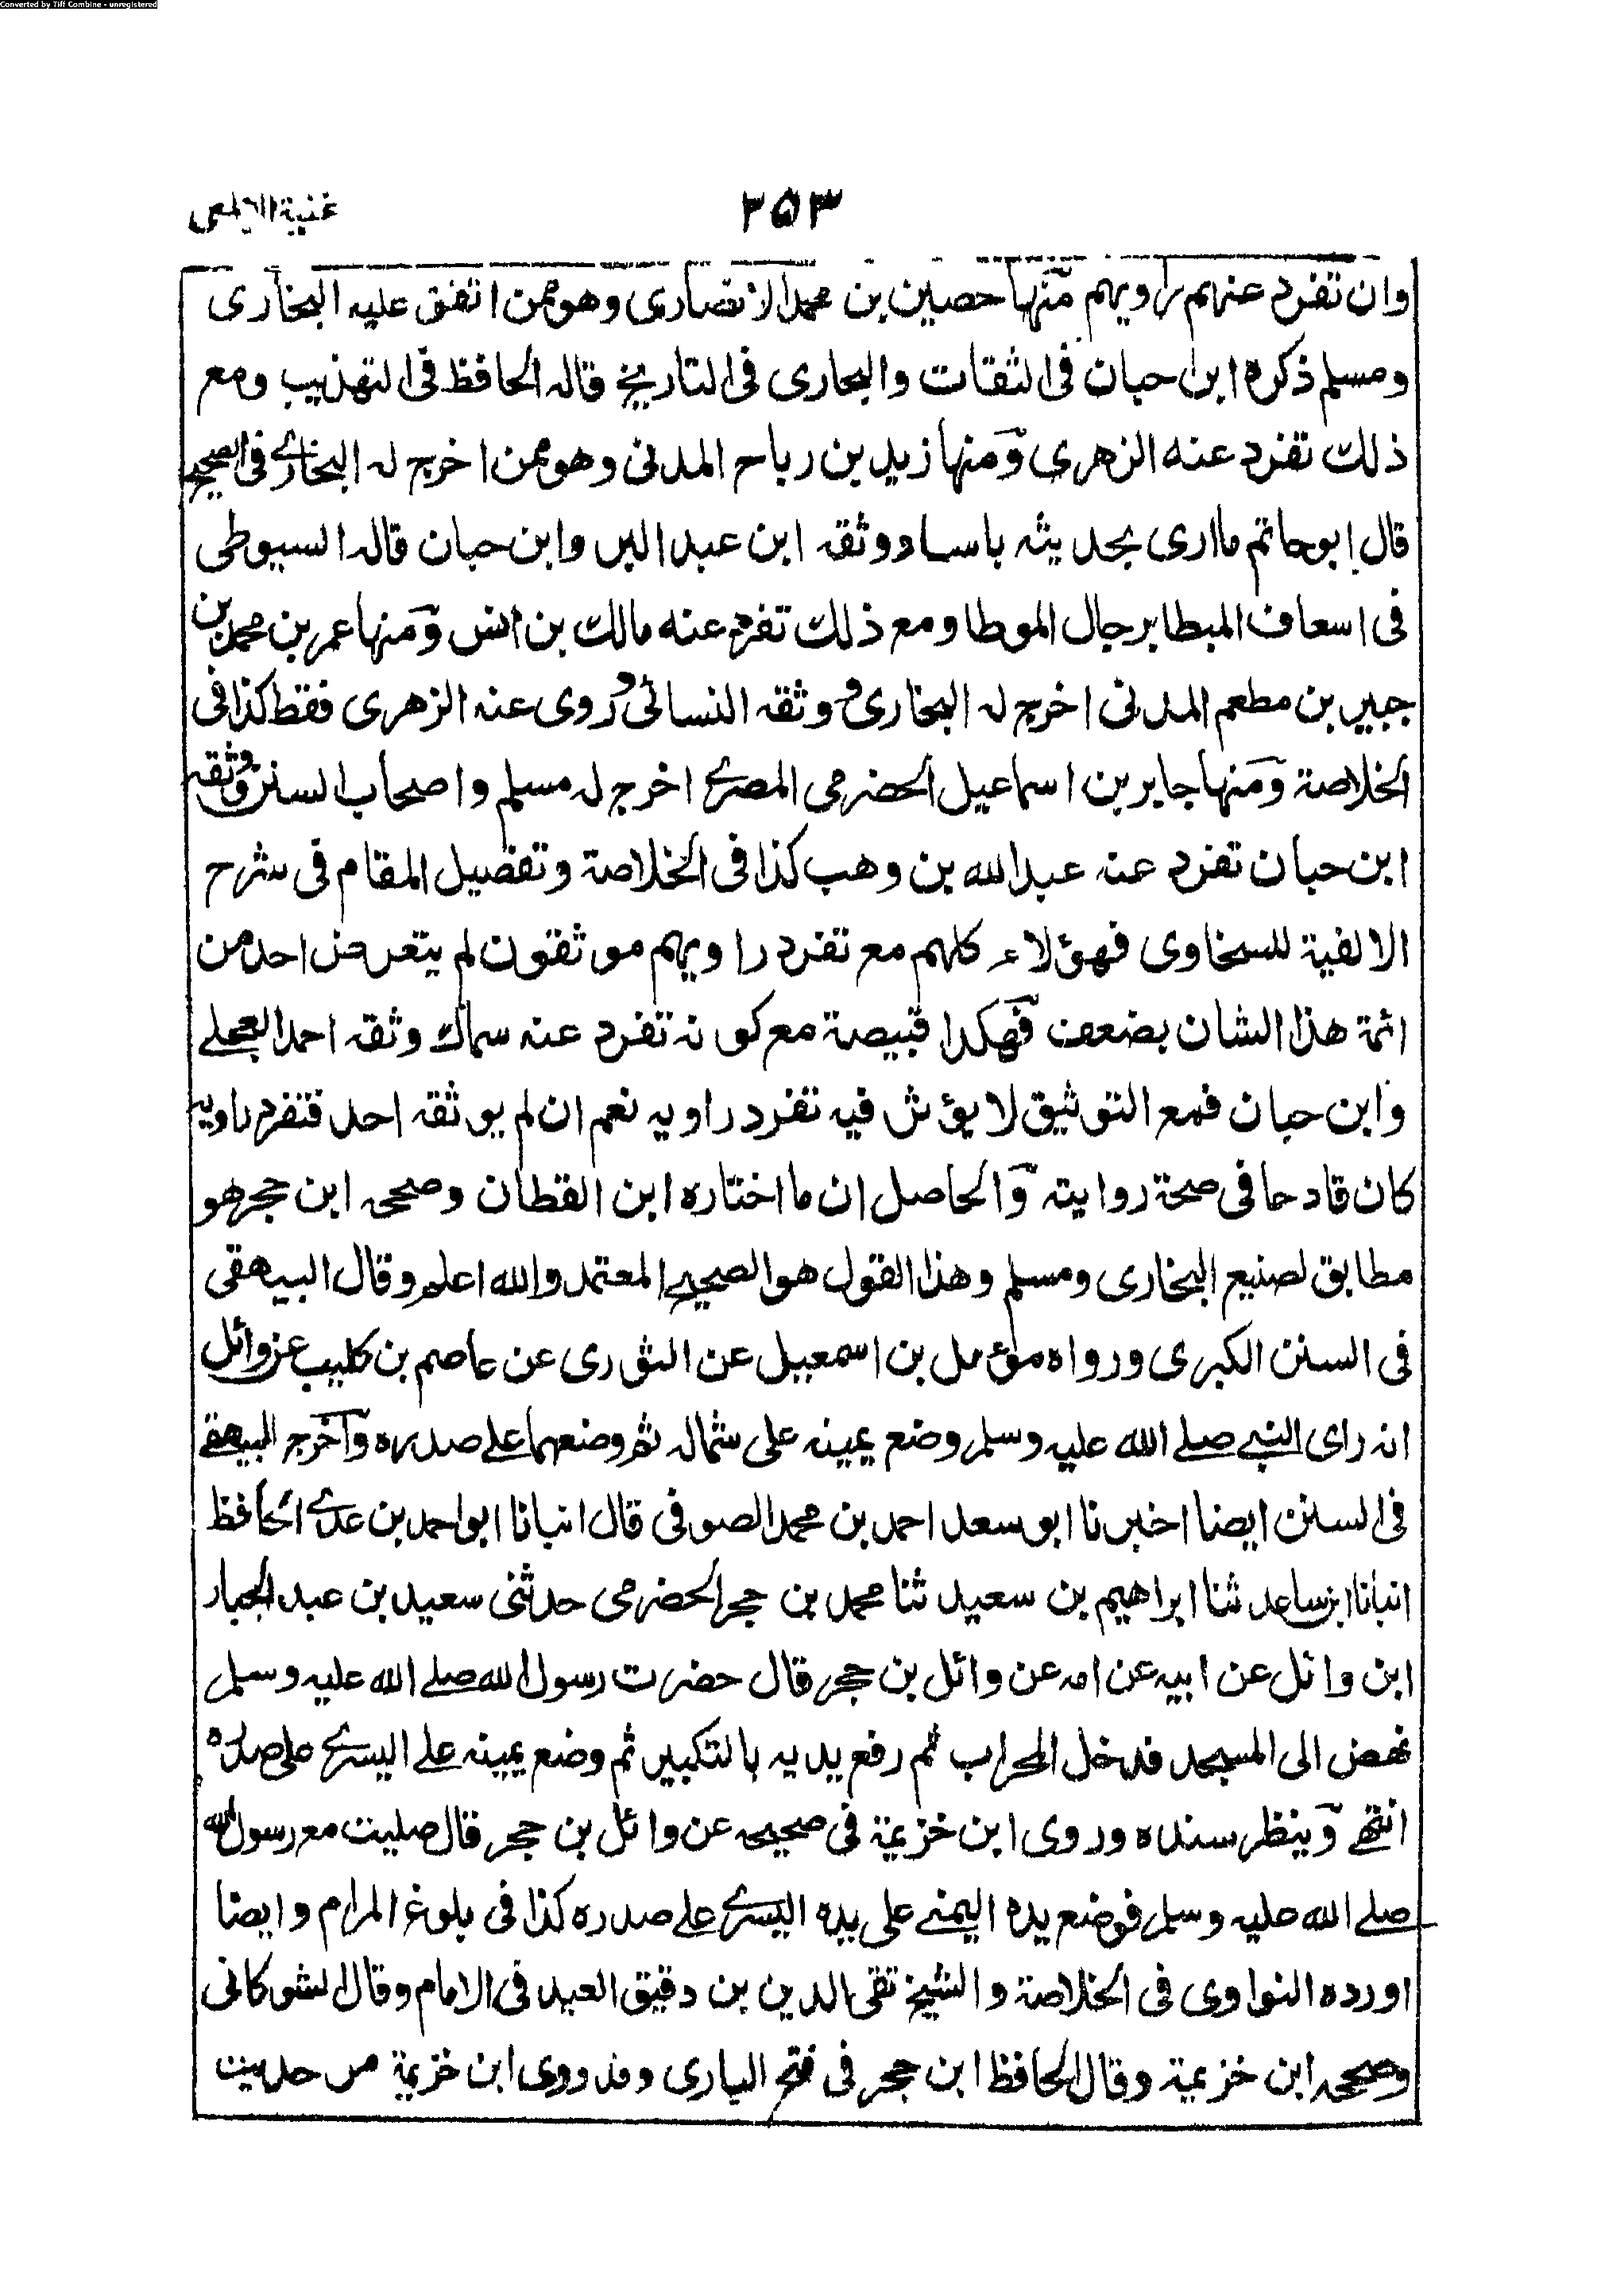 Converted by Tiff Combine - unregistered
غنية الالمعى
٢٥٣
وان تفرد عنهم راويهم منها حصين بن محمد الانصارى وهو ممن اتفق عليه البخارى
ومسلم ذكره ابن حبان فى الثقات والبخارى فى التاريخ قاله الحافظ فى التهذيب ومع
ذلك تفرد عنه الزهرى ومنها زيد بن رباح المدنى وهو ممن اخرج له البخارى فى الصحيح
قال ابو حاتم ما ارى بحديثه باسا ووثقه ابن عبد البر وابن حبان قاله السيوطى
فى اسعاف المبطا برجال الموطا ومع ذلك تفرد عنه مالك بن انس ومنها عمر بن محمد بن
جبير بن مطعم المدنى اخرج له البخارى ووثقه النسائى وروى عنه الزهرى فقط كذا فى
الخلاصة ومنها جابر بن اسماعيل الحضرمى المصرى اخرج له مسلم واصحاب السنن وثقه
ابن حبان تفرد عنه عبد الله بن وهب كذا فى الخلاصة وتفصيل المقام فى شرح
الالفية للسخاوى فهؤلاء كلهم مع تفرد راويهم موثقون لم يتعرض احد من
ائمة هذا الشان بضعف فهكذا قبيصة مع كونه تفرد عنه سماك وثقه احمد العجلى
وابن حبان فمع التوثيق لا يؤثر فيه تفرد راويه نعم ان لم يوثقه احد فتفرد راويه
كان قادحا فى صحة روايته والحاصل ان ما اختاره ابن القطان وصححه ابن حجر هو
مطابق لصنيع البخارى ومسلم وهذا القول هو الصحيح المعتمد والله اعلم وقال البيهقى
فى السنن الكبرى ورواه مؤمل بن اسمعيل عن الثورى عن عاصم بن كليب عن وائل
انه راى النبى صلى الله عليه وسلم وضع يمينه على شماله ثم وضعهما على صدره واخرج البيهقى
فى السنن ايضا اخبرنا ابو سعد احمد بن محمد الصوفى قال انبانا ابو احمد بن عدى الحافظ
انبانا ابن ساعد ثنا ابراهيم بن سعيد ثنا محمد بن حجر الحضرمى حدثنى سعيد بن عبد الجبار
ابن وائل عن ابيه عن امه عن وائل بن حجر قال حضرت رسول الله صلى الله عليه وسلم
نهض الى المسجد فدخل المحراب ثم رفع يديه بالتكبير ثم وضع يمينه على اليسرى على صدره
انتهى وينظر سنده وروى ابن خزيمة فى صحيحه عن وائل بن حجر قال صليت مع رسول الله
صلى الله عليه وسلم فوضع يده اليمنى على يده اليسرى على صدره كذا فى بلوغ المرام وايضا
اورده النواوى فى الخلاصة والشيخ تقى الدين بن دقيق العيد فى الامام وقال الشوكانى
وصححه ابن خزيمة وقال الحافظ ابن حجر فى فتح البارى وقد روى ابن خزيمة من حديث